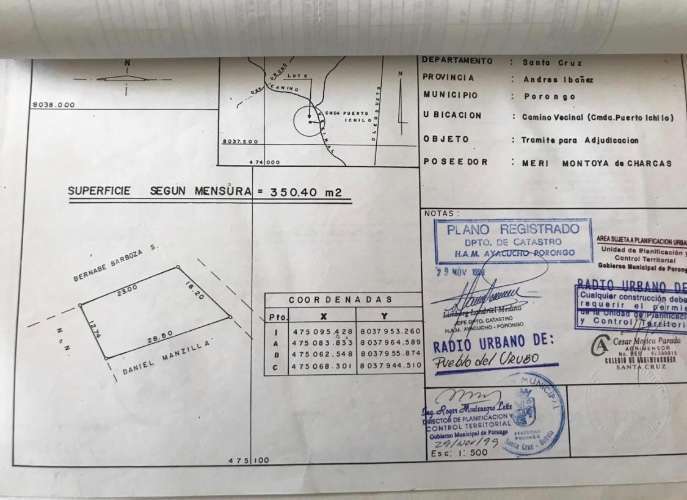 DEPARTAMENTO : Santa Cruz
PROVINCIA : Andres Ibañez
MUNICIPIO : Porongo
UBICACION : Camino Vecinal (Cmda.Puerto Ichilo)
OBJETO : Tramite para Adjudicacion
POSEEDOR : MERI MONTOYA de CHARCAS
N
8038.000
LOTE
CAMINO
CMDA PUERTO
ICHILO
VECINAL
8037.500
474.000
SUPERFICIE SEGUN MENSURA = 350.40 m2
BERNABE BARBOZA S.
23.00
18.20
12.74
28.60
N & N
DANIEL MANZILLA
COORDENADAS
Pto. X Y
1 475095.428 8037953.260
A 475083.833 8037964.589
B 475062.548 8037955.874
C 475068.301 8037944.510
475100
NOTAS:
PLANO REGISTRADO
DPTO. DE CATASTRO
H.A.M. AYACUCHO PORONGO
29 NOV
JEFE DPTO. CATASTRO
H.A.M. AYACUCHO - PORONGO
RADIO URBANO DE:
Pueblo del URUBO
AREA SUJETA A PLANIFICACION URBA
Unidad de Planificación y
Control Territorial
Gobierno Municipal de Porongo
RADIO URBANO DE
Cualquier construcción debe
requerir el permi
de la Unidad de Planificac
y Control Territori
Cesar Mojica Parada
AGRIMENSOR
COLEGIO DE AGRIMENSORES
SANTA CRUZ
DIRECTOR DE PLANIFICACION Y
CONTROL TERRITORIAL
Gobierno Municipal de Porongo
29/Nov/99
MUNICIPAL
Santa Cruz - Bolivia
Esc: 1:500